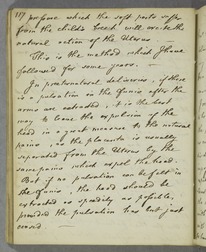 117 pressure which the soft parts suffer
from the childs breech will excite the
natural action of the Uterus
This is the method which I have
followed for some years. —
In preternatural deliveries, if there
is a pulsation in the funis after the
arms are extracted, it is the best
way to leave the expulsion of the
head in a great measure to the natural
pains, as the placenta is usually
separated from the Uterus by the
same pains which expel the head.
But if no pulsation can be felt in
the funis, the head should be
extracted as speedily as possible,
provided the pulsation has but just
ceased —